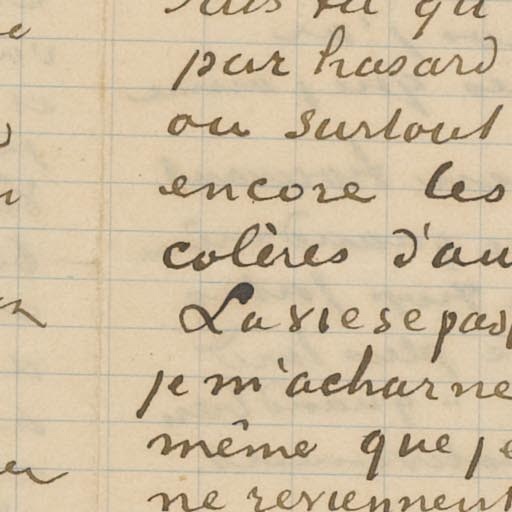 par hasard
ou surtout
encore les
colères d'au
La vie se pas
je m'acharne
même que je
ne reviennent